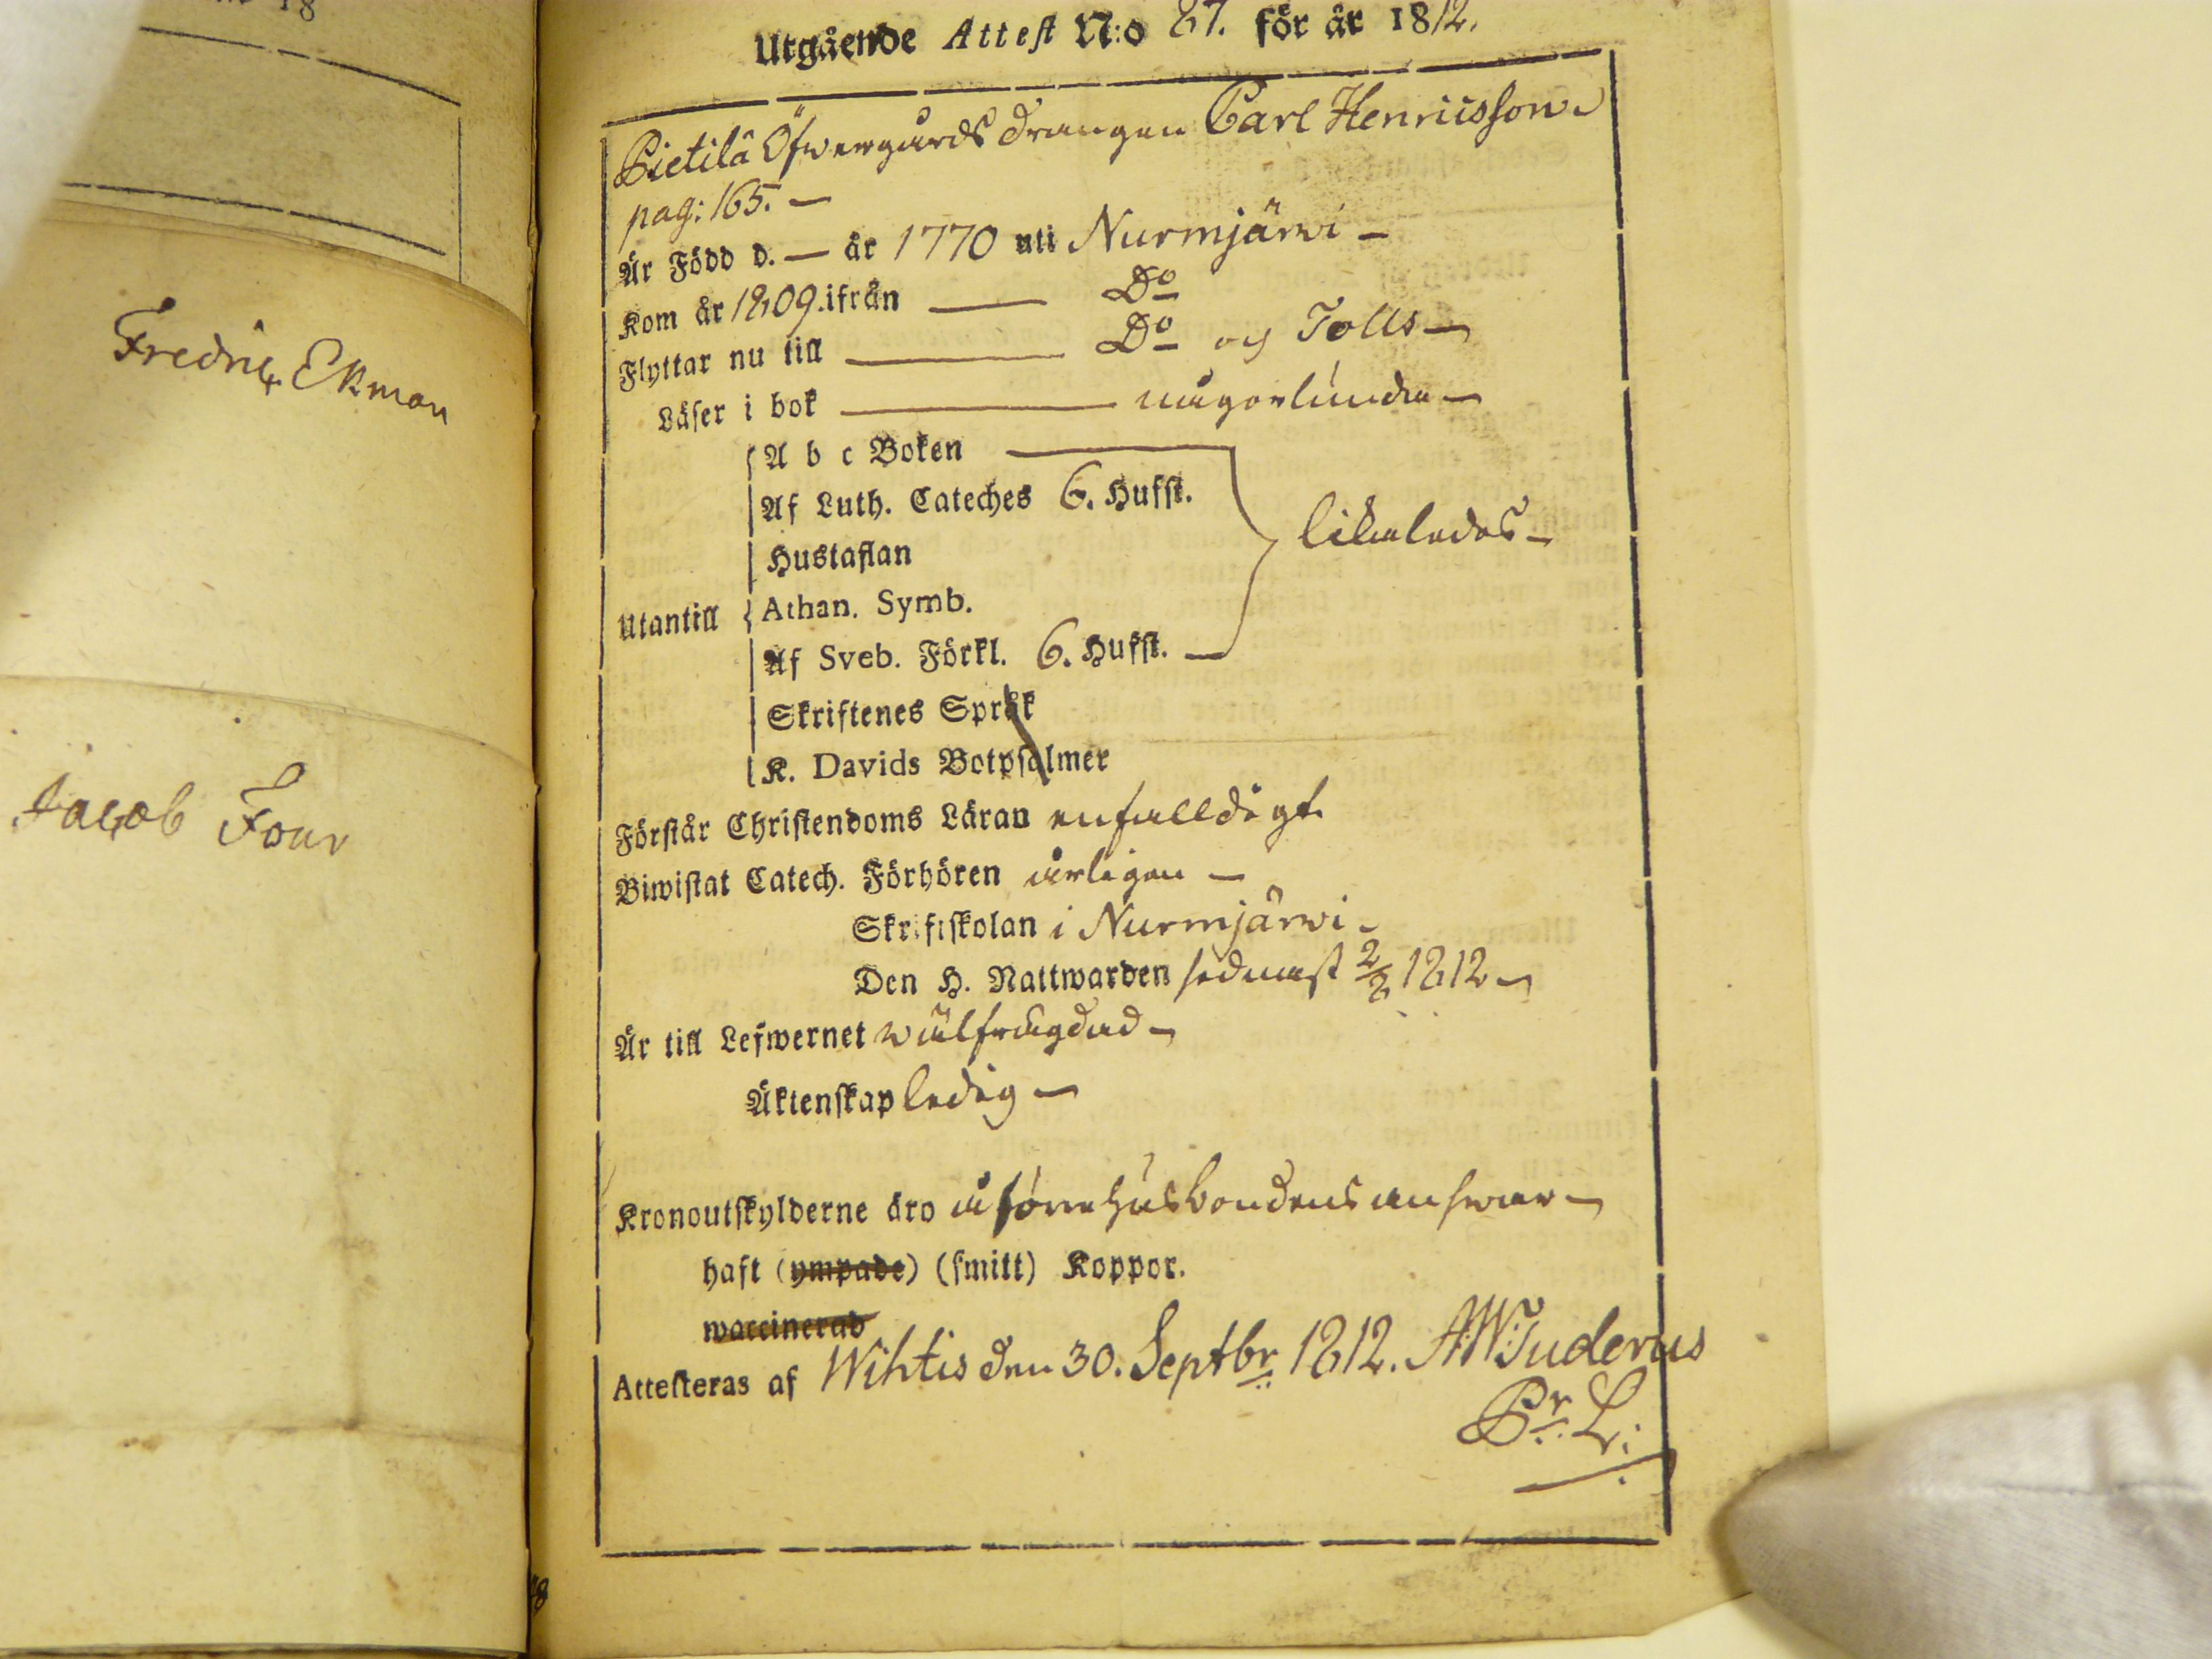 18
Fredric Ekman
Jacob Four
Utgående Attest N:o 87. för år 1812.
Pietilä Öfwergårds Drängen Carl Henricsson
pag: 165. —
Är Född d. — år 1770 uti Nurmjärwi —
Kom år 1809. ifrån — Do
Flyttar nu till — Do och Tolls —
Läser i bok — någorlunda —
Utantill
A b c Boken —
Af Luth. Cateches 6. Hufst.
Hustaflan
likaledes —
Athan. Symb.
Af Sveb. Förkl. 6. Hufst. —
Skriftenes Språk
K. Davids Botpsalmer
Förstår Christendoms Läran enfalldigt.
Biwistat Catech. Förhören årligen —
Skriftskolan i Nurmjärwi —
Den H. Nattwarden sednast 2/8 1812 —
Är till Lefwernet wälfrägdad —
Äktenskap ledig —
Kronoutskylderne äro å förra husbondens answar —
haft (ympade) (smitt) Koppor.
waccinerad
Attesteras af Wihtis den 30. Septbr. 1812. A W Tuderus
Pr. L: